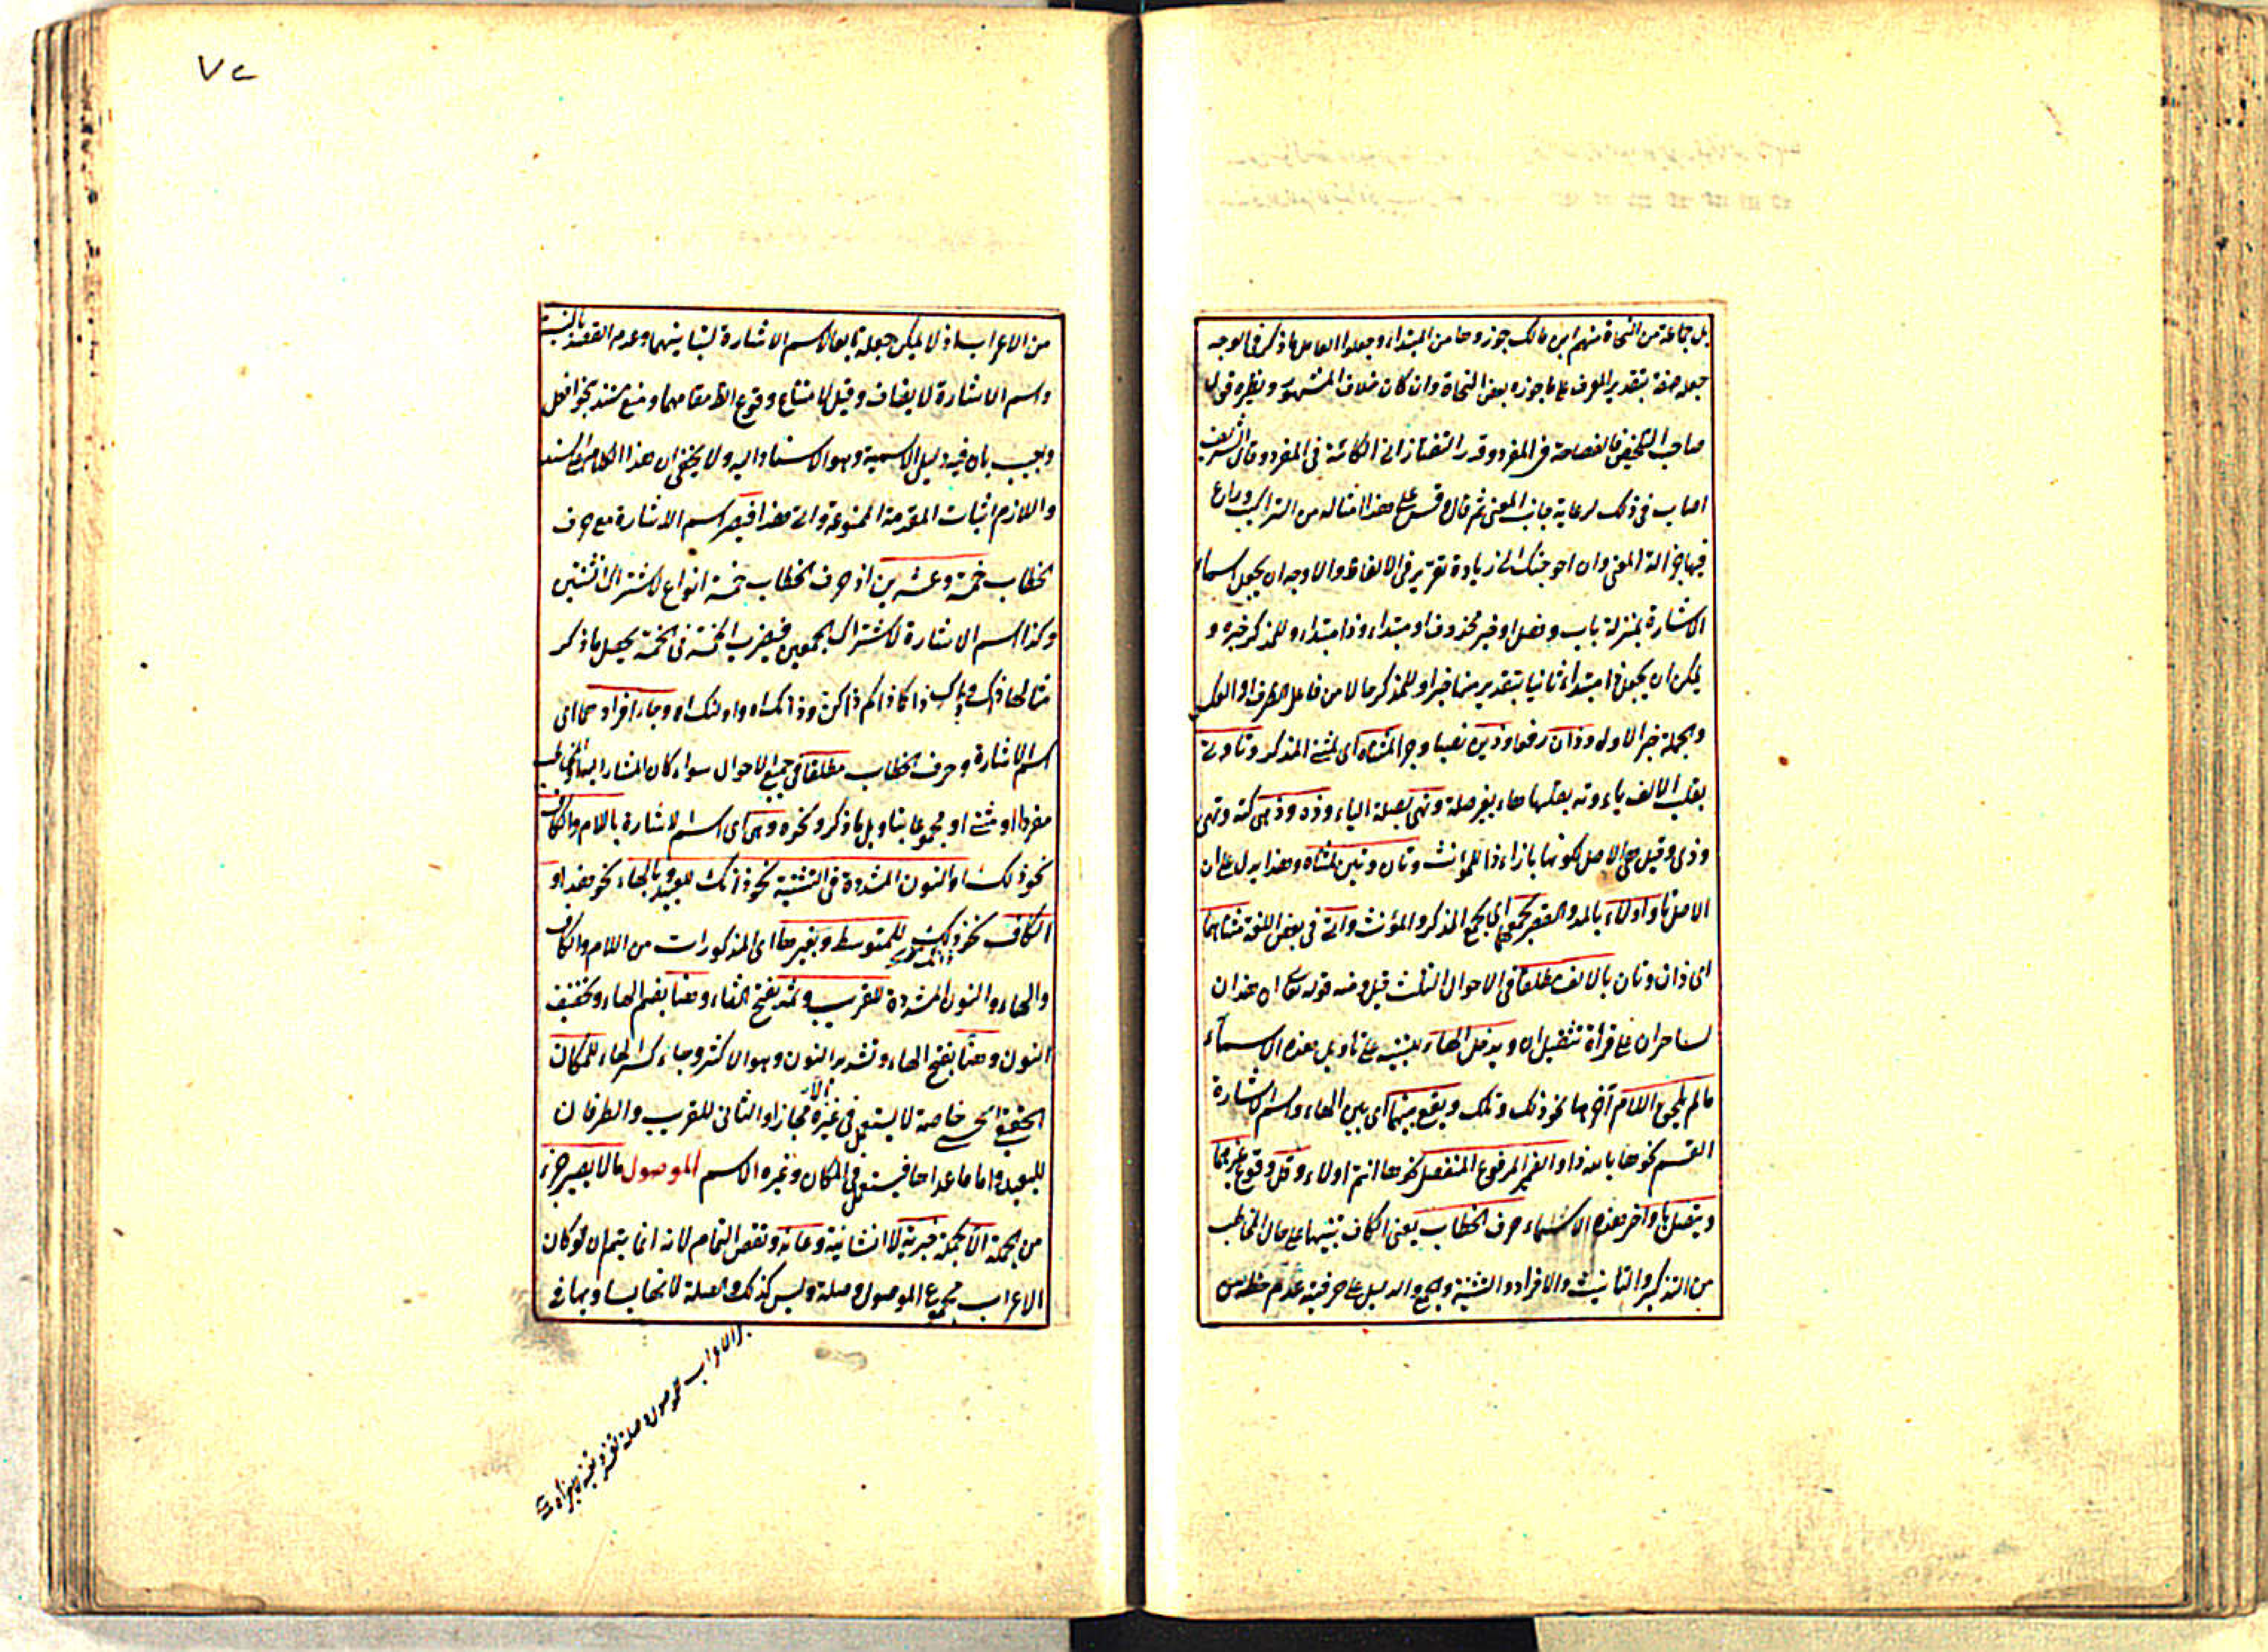 بل جماعة من النحاة منهم ابن مالك جوزوها من المبتداء وجعلوا العامل ما ذكر فالوجه
جعله صفة بتقدير المعرف على ما جوزه بعض النحاة وان كان خلاف المشهور ونظيره قول
صاحب التلخيص فالفصاحة فى المفرد وقدر التفتازانى الكائنة فى المفرد وقال الشريف
اصاب فى ذلك لرعاية جانب المعنى ثم قال وقس على هذا امثاله من التراكيب وراع
فيها جزالة المعنى وان احوجتك الى زيادة تقرير فى الالفاظ والاوجه ان يجعل اسماء
الاشارة بمنزلة باب وفصل او خبر محذوف او مبتداء وذا مبتداء وللمذكر خبره و
يمكن ان يجعل ذا مبتداء ثانيا بتقدير منها خبرا وللمذكر حالا من فاعل الظرف او
والجملة خبر الاول وذان رفعا وذين نصبا وجرا لمثناه اى لمثنى المذكر وتا وتى
بقلب الالف ياء وته بقلبها هاء بغير صلة وتهى بصلة الياء وذه وذهى كته وتهى
وذى وقيل هى الاصل لكونها بازاء ذا للمؤنث وتان وتين لمثناه وهذا يدل على ان
الاصل تا واولاء بالمد والقصر لجمعهما اى لجمع المذكر والمؤنث واتى فى بعض اللغة مثناهما
اى ذان وتان بالالف مطلقا فى الاحوال الثلث قيل ومنه قوله تعالى ان هذان
لساحران على قرأة تثقيل ان ويدخل الهاء للتنبيه على تأويل هذه الاسماء
ما لم يلحق اللام آخرها نحو ذلك وتلك ويقع بينهما اى بين الهاء واسم الاشارة
القسم نحو ها بالله ذا او الضمير المرفوع المنفصل نحو ها انتم اولاء وقل وقوع غيرهما
ويتصل باواخر هذه الاسماء حرف الخطاب يعنى الكاف تنبيها على حال المخاطب
من التذكير والتانيث والافراد والتثنية والجمع والدليل على حرفيته عدم حظه من
٧٢
من الاعراب اذ لا يمكن جعله تابعا لاسم الاشارة لتباينهما وعدم القصد بالنسبة
واسم الاشارة لا يضاف وقيل لامتناع وقوع الظ مقامهما ومنع بسند نحو افعل
واجيب بان فيه دليل الاسمية وهو الاسناد اليه ولا يخفى ان هذا الكلام على السند
واللازم اثبات المقدمة الممنوعة وانى هذا فيصير اسم الاشارة مع حرف
الخطاب خمسة وعشرين اذ حرف الخطاب خمسة انواع لاشتراك اثنتين
وكذا اسم الاشارة لاشتراك الجمعين فيضرب الخمسة فى الخمسة يحصل ما ذكر
مثالها ذاك وذاك ذاكما ذاكم ذاكن وذانك اه واولئك اه وجاء افرادهما اى
اسم الاشارة وحرف الخطاب مطلقا فى جميع الاحوال سواء كان المشار اليه او المخاطب
مفردا او مثنى او مجموعا بتاويل ما ذكر ونحوه وهى اى اسم الاشارة باللام والكاف
نحو ذلك او النون المشددة فى التثنية نحو ذانك للبعيد وبالهاء نحو هذا او
الكاف نحو ذاك للمتوسط وبغيرها اى المذكورات من اللام والكاف
والهاء والنون المشددة للقريب وثمه بفتح الثاء وهنا بضم الهاء وتخفيف
النون وهنا بفتح الهاء وتشديد النون وهو الاكثر وجاء كسر الهاء للمكان
الحقيقى الحسى خاصة لا يستعمل فى غيره الا مجازا والثانى للقريب والطرفان
للبعيد واما ما عداها فيستعمل فى المكان وغيره الاسم الموصول ما لا يصير جزء
من الجملة الا بجملة خبرية لا انشائية وعائد ونقض التمام لانه انما يتم ان لو كان
الاعراب مجموع الموصول وصلة وليس كذلك والصلة لاتحاد يساويها فى